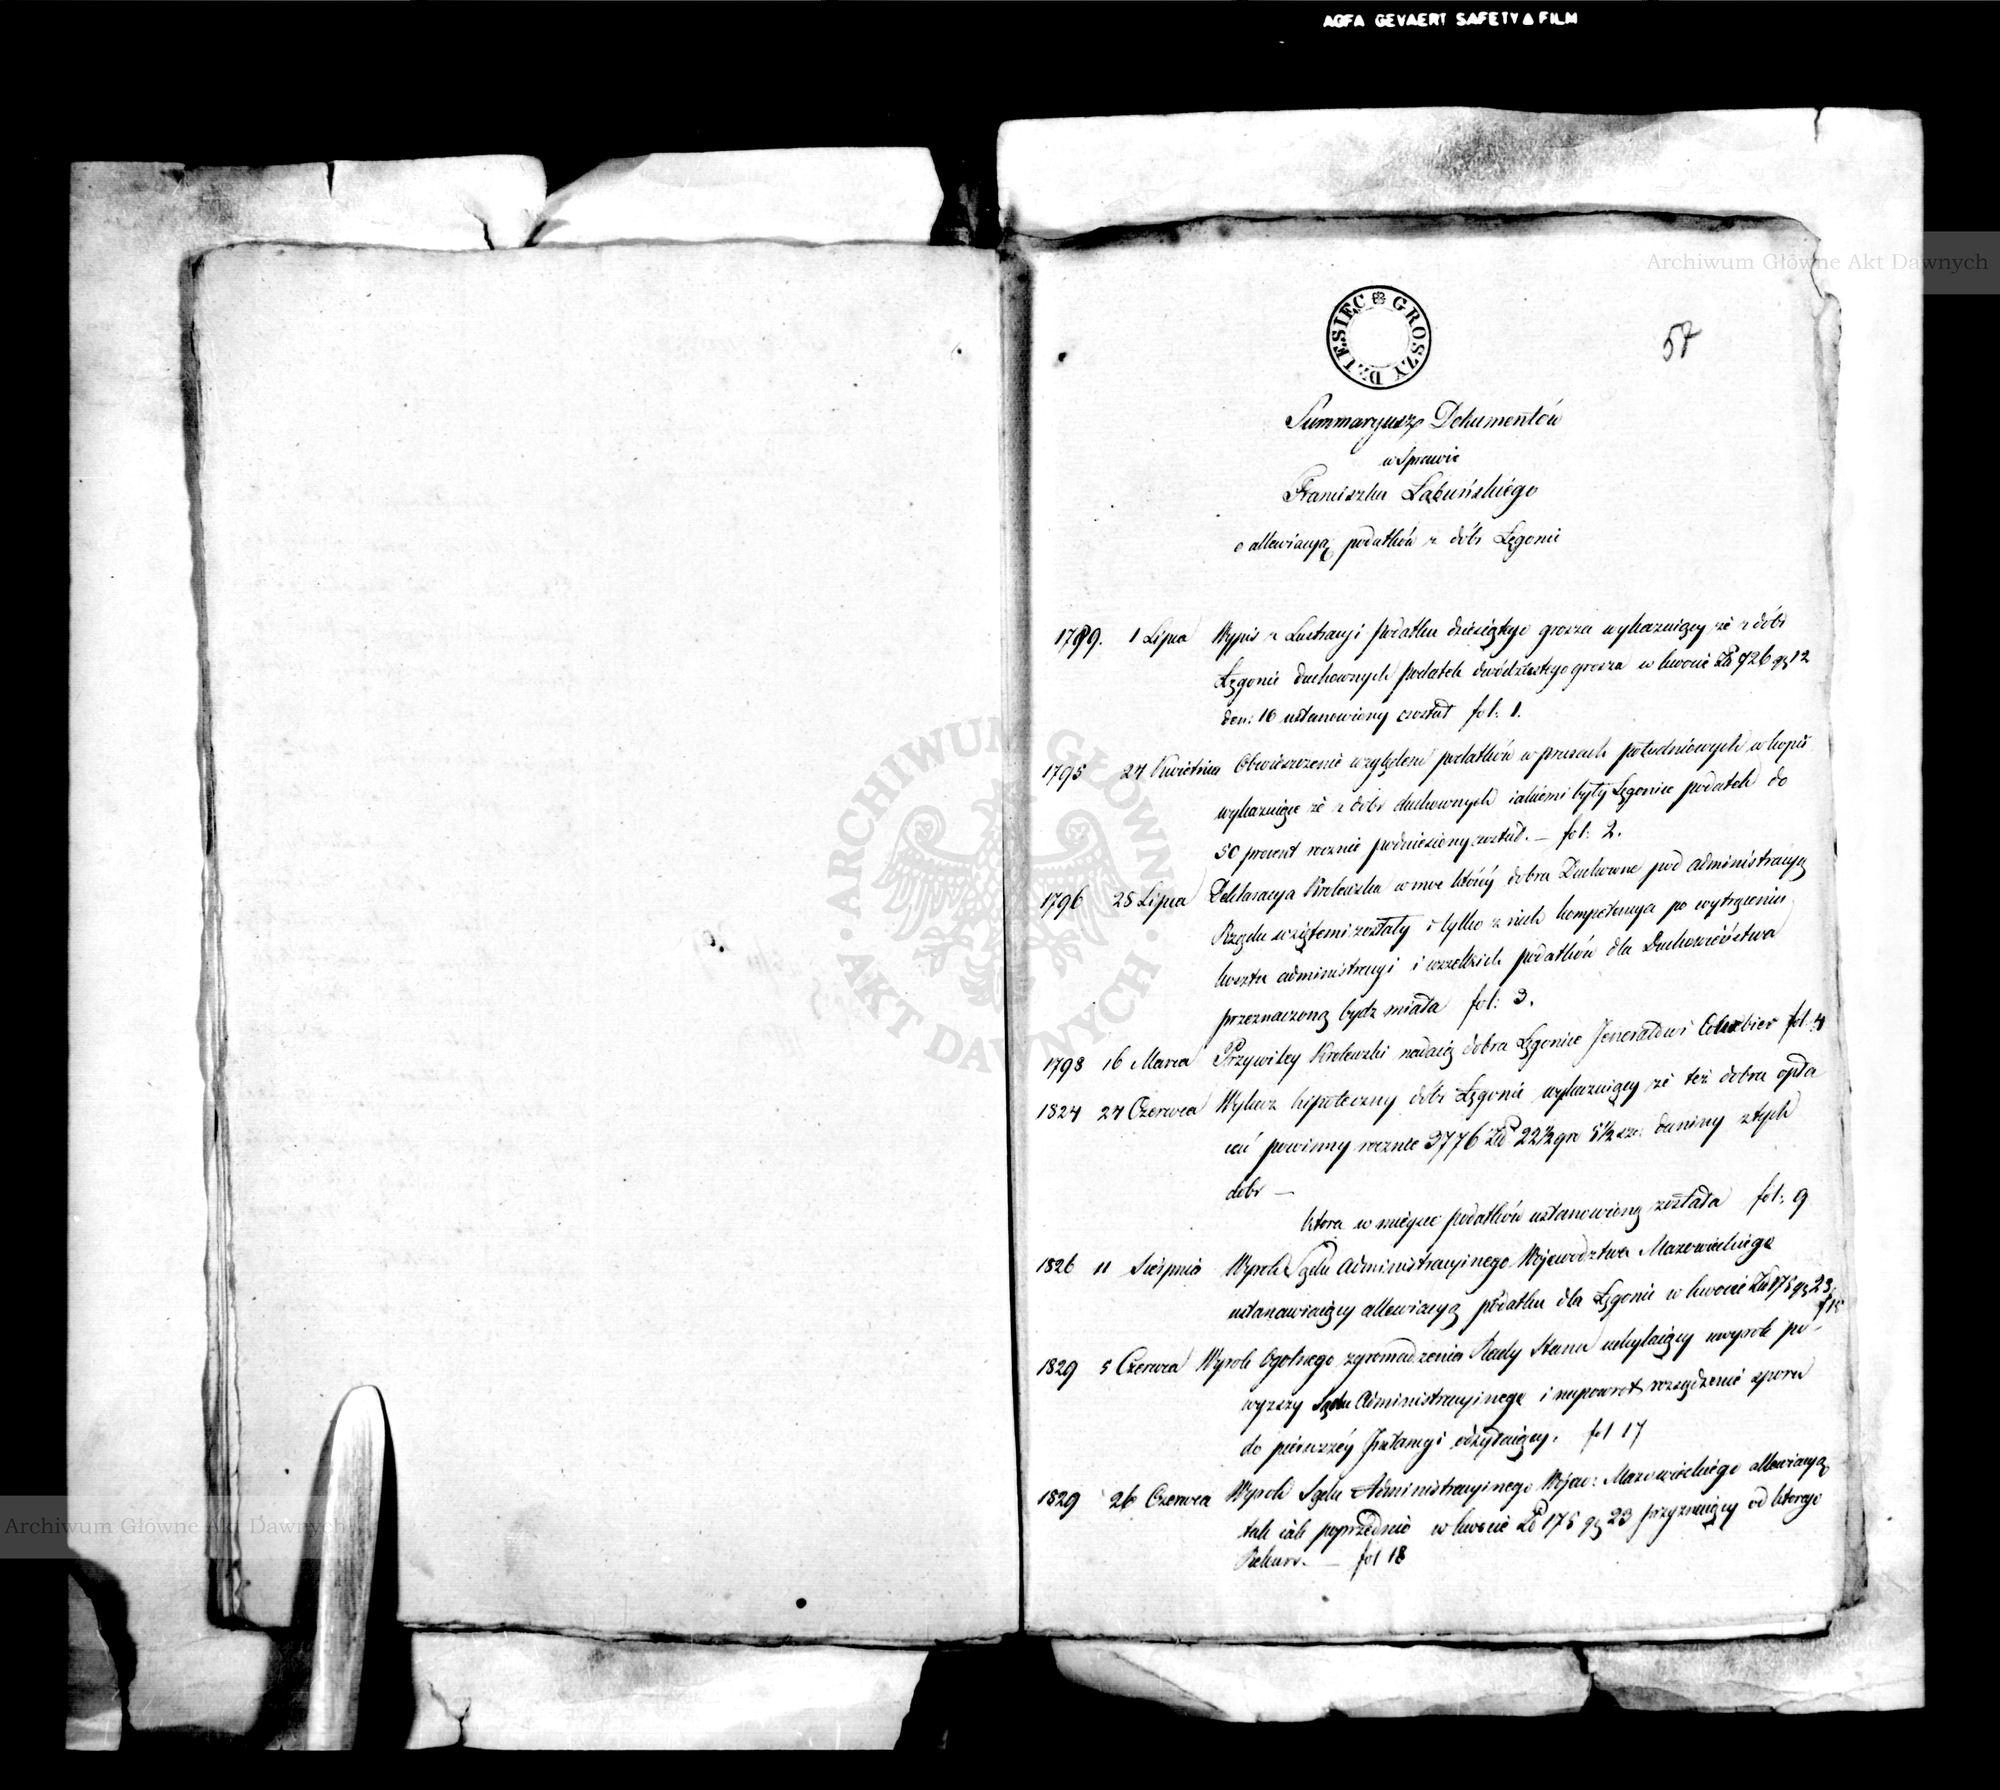 AGFA GEVAERT SAFETY FILM
Archiwum Główne Akt Dawnych
DZIESIĘC GROSZY
57
Summaryusz Dokumentów
w Sprawie
Franciszka Łabuńskiego
o allewiacyą podatków z dóbr Łęgonic
1789. 1 Lipca Wypis z Lustracyi podatku dziesiątego grosza wykazuiący że z dóbr
Łęgonic duchownych podatek dwódziestego grosza w kwocie Zł 926 gr 12
den: 16 ustanowiony został fol: 1.
1795 24 Kwietnia Obwieszczenie względem podatków w prusach południowych w kopii
wykazuiące że z dóbr duchownych iakiemi były Łęgonice podatek do
50 procent rocznie podniesiony został. — fol: 2.
1796 28 Lipca Deklaracya Krolewska w moc któréy dobra Duchowne pod administracyą
Rządu wziętemi zostały i tylko z nich kompetencya po wytrąceniu
kosztu administracyi i wszelkich podatków dla Duchowieństwa
przeznaczoną bydz miała fol: 3.
1798 16 Marca Przywiley Krolewski nadaią dobra Łęgonice Jenerałowi fol: 4
1824 24 Czerwca Wykaz hipoteczny dóbr Łęgonic wykazuiący że też dobra opła
cać powinny rocznie 3776 Zł 22½ gr 5½ daniny z tych
dobr —
ktora w mieysce podatków ustanowioną została fol: 9
1826 11 Sierpnia Wyrok Sądu Administracyinego Województwa Mazowieckiego
ustanawiaiący allewiacyą podatku dla Łęgonic w kwocie Zł 175 gr 23.
f 15
1829 5 Czerwca Wyrok Ogolnego zgromadzenia Rady Stanu uchylaiący wyrok po-
wyższy Sądu Administracyinego i napowrot rozsądzenie sporu
do pierwszéy Instancyi odsyłaiący. fol 17
1829 26 Czerwca Wyrok Sądu Administracyinego Wojew: Mazowieckiego allewiacyą
tak iak poprzednio w kwocie Zł 175 gr 23 przyznaiący od ktorego
Rekurs. — fol 18
ARCHIWUM GŁÓWNE · AKT DAWNYCH ·
Archiwum Główne Akt Dawnych